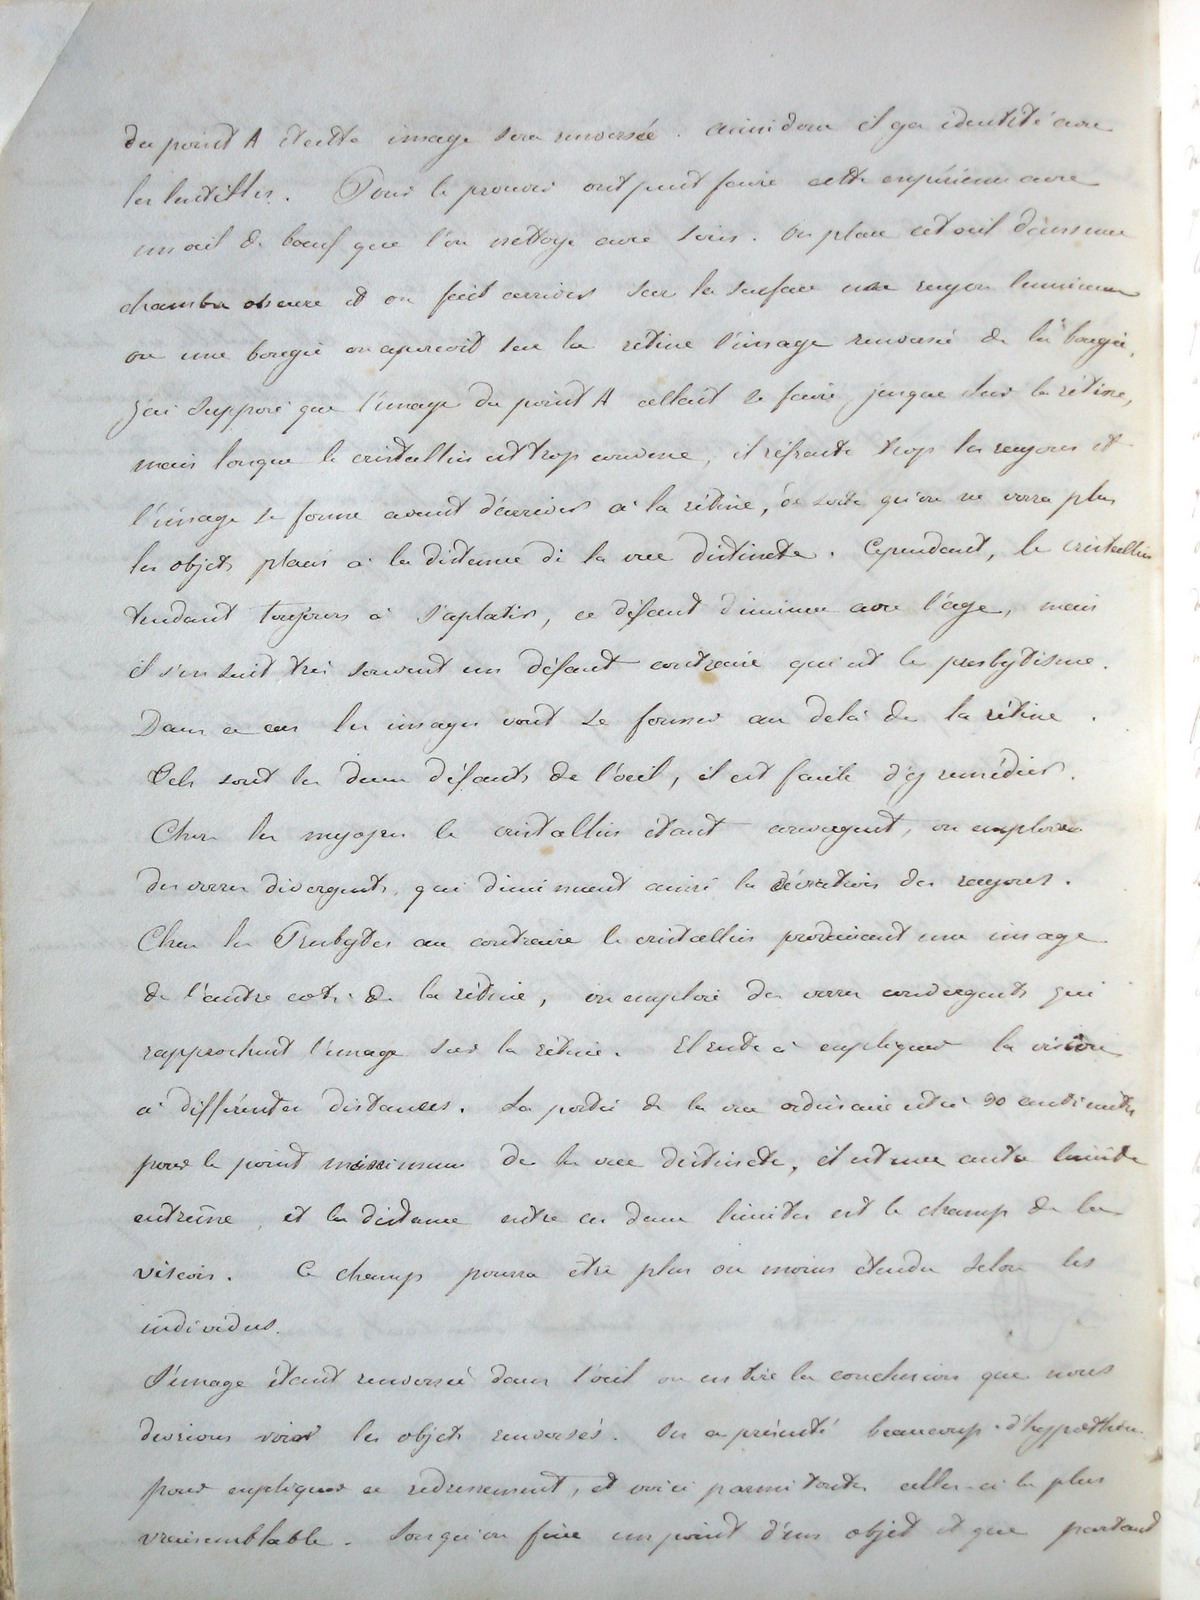 du point A et cette image sera renversée. ainsi donc il y a identité avec
les lentilles. Pour le prouver ont peut faire cette expérience avec
un œil de bœuf que l'on nettoye avec soin. On place cet œil dans une
chambre obscure et on fait arriver sur la surface un rayon lumineux
ou une bougie on aperçoit sur la rétine l'image renversé de la bougie,
j'ai supposé que l'image du point A allait se faire jusque sur la rétine,
mais lorsque le cristallin est trop convexe, il réfracte trop les rayons et
l'image se forme avant d'arriver à la rétine, de sorte qu'on ne verra plus
les objets placés à la distance de la vue distincte. Cependant, le cristallin
tendant toujours à s'aplatir, ce défaut diminue avec l'âge, mais
il s'en suit très souvent un défaut contraire qui est le presbytisme.
Dans ce cas les images vont se former au delà de la rétine.
Tels sont les deux défauts de l'œil, il est facile d'y remédier.
Chez les myopes le cristallin étant convergent, on emploie
des verres divergents, qui diminuent ainsi la déviation des rayons.
Chez les Presbytes au contraire le cristallin produisant une image
de l'autre coté de la rétine, on emploie des verres convergents qui
rapprochent l'image sur la rétine. Il reste à expliquer la vision
à différentes distances. La portée de la vue ordinaire est à 30 centimètres
pour le point minimum de la vue distincte, il est une autre limite
extrême, et la distance entre ces deux limites est le champ de la
vision. Ce champ pourra etre plus ou moins étendu selon les
individus.
L'image étant renversée dans l'œil on en tire la conclusion que nous
devrions voir les objets renversés. On a présenté beaucoup d'hypothèses
pour expliquer ce redressement, et voici parmi toutes celles-ci la plus
vraisemblable. Lorsqu'on fixe un point d'un objet et que partant